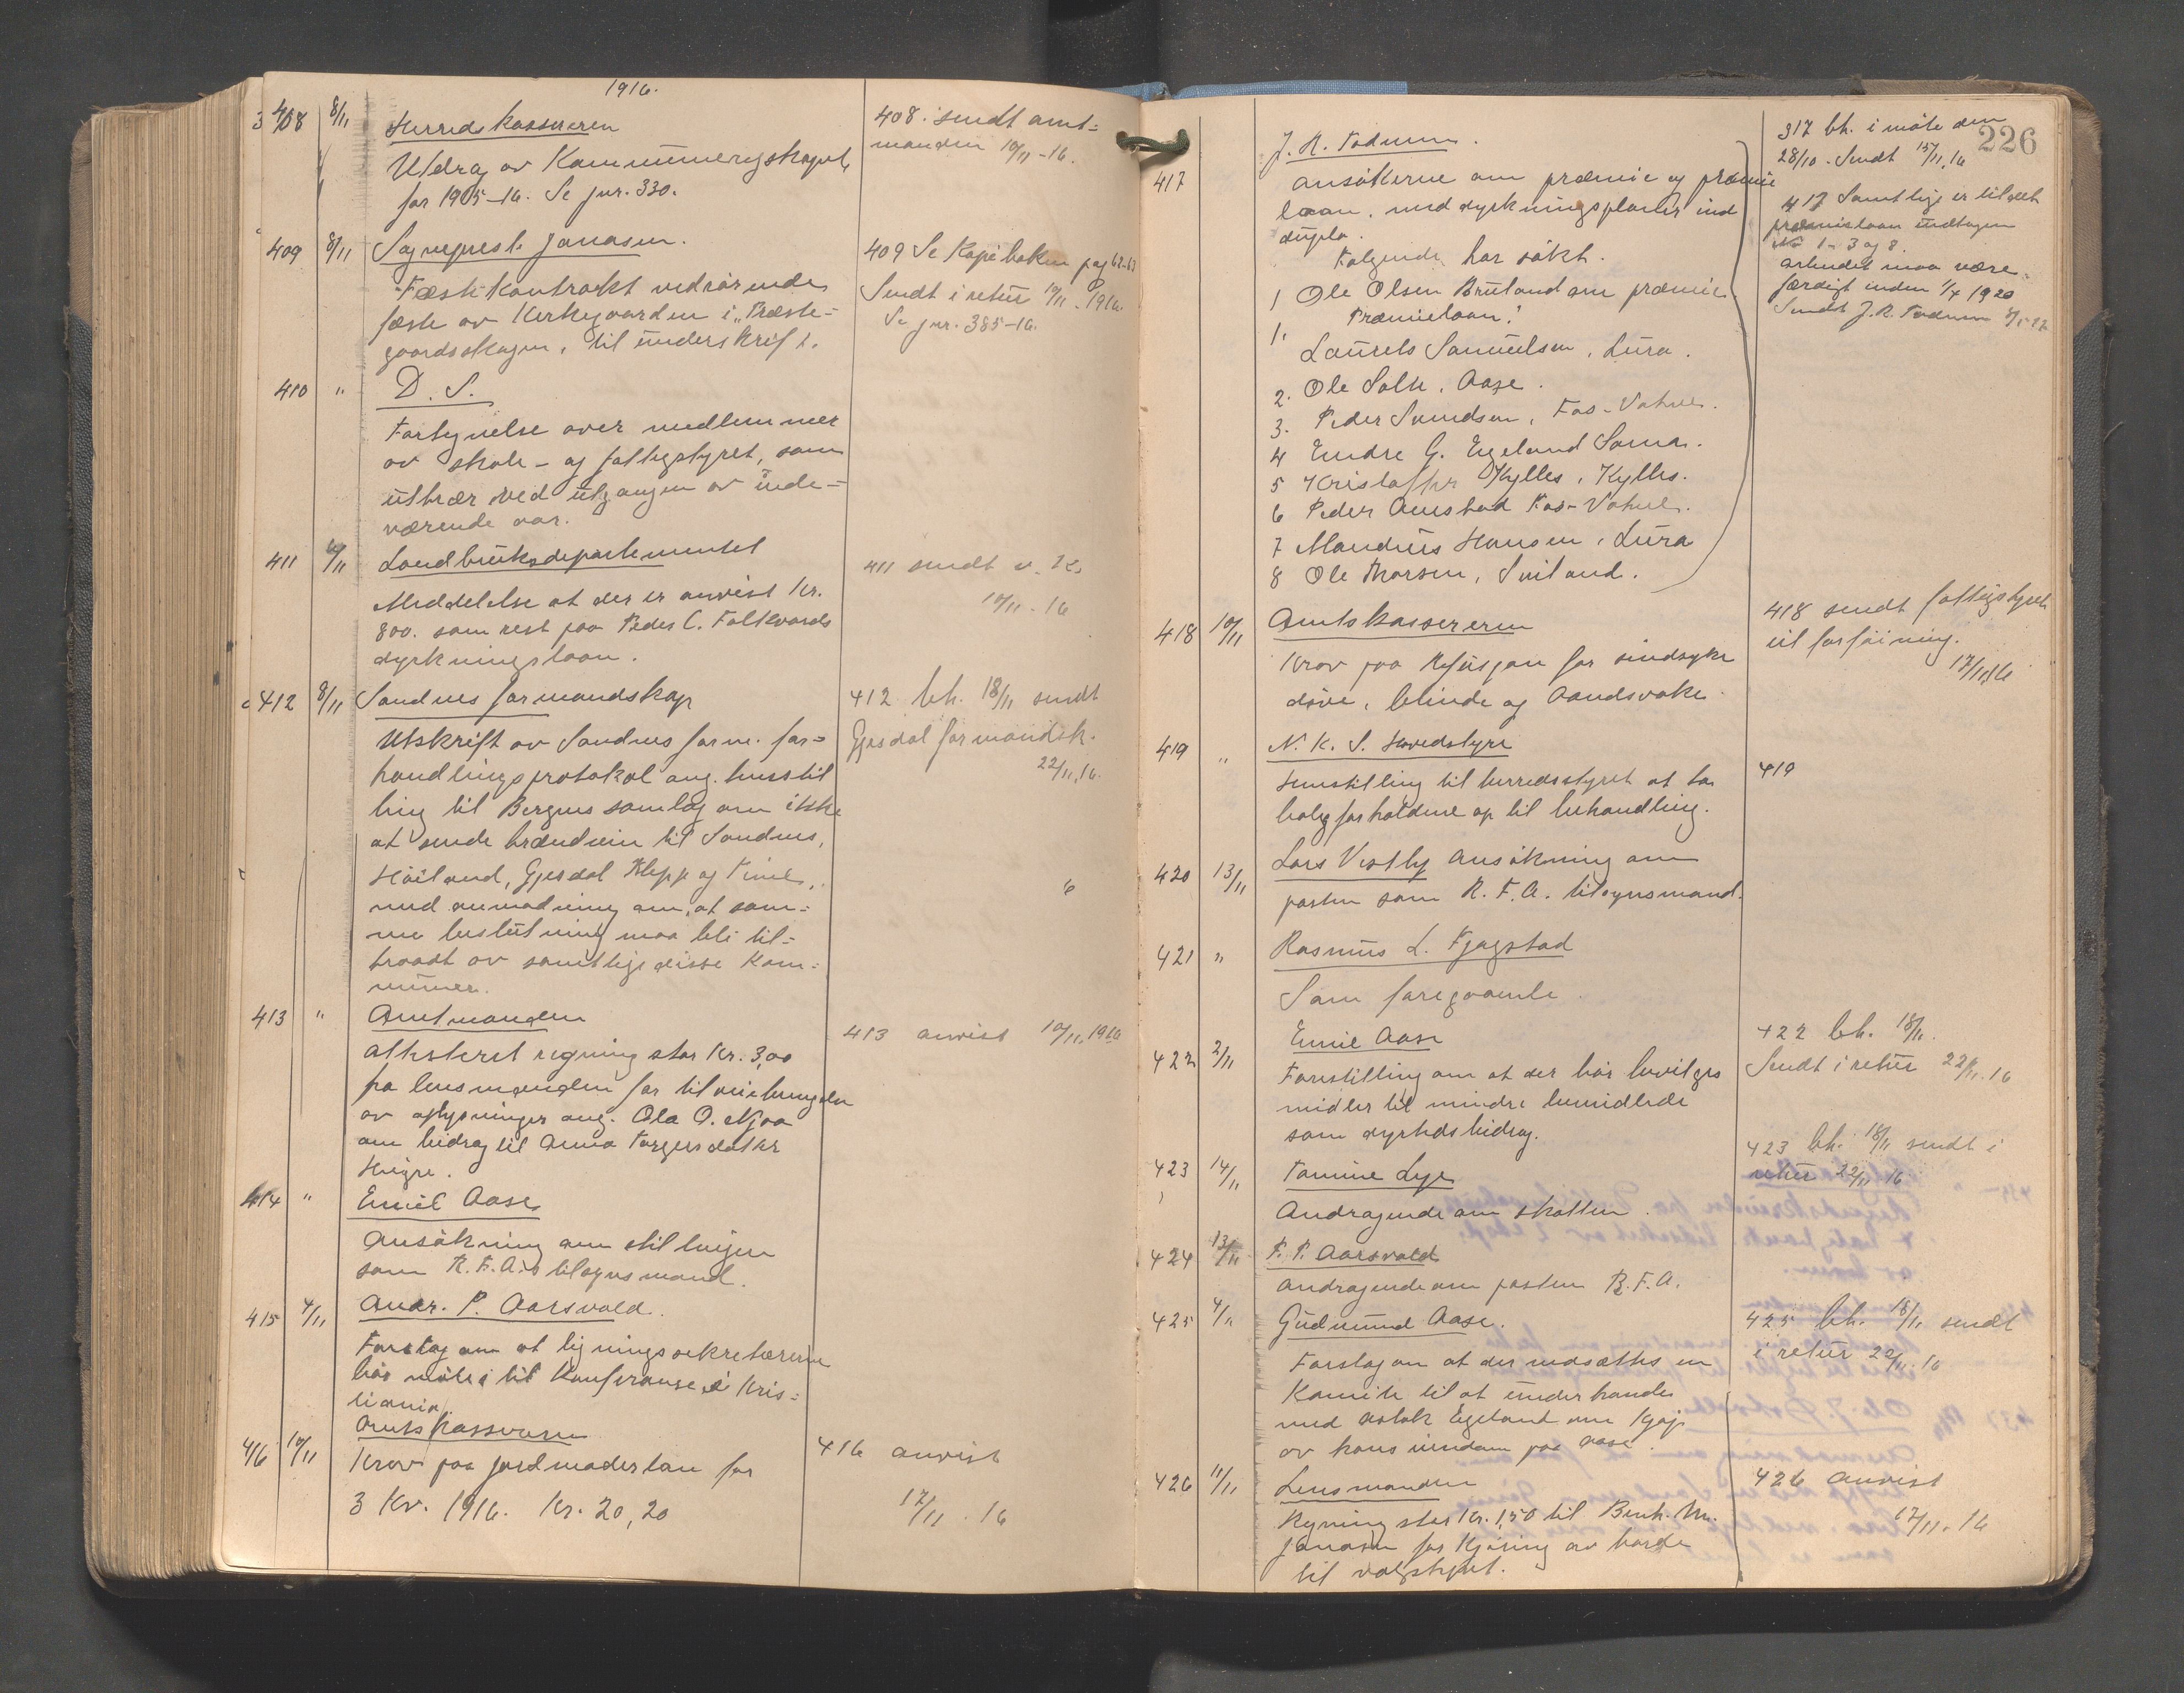 1916.
408 8/11 Herredskassereren
Utdrag av Kommuneregnskapet
for 1905-16. Se jnr. 330.
408. sendt amt=
manden 10/11-16.
409 8/11 Sogneprest Jonassen.
Fæstekontrakt vedrørende
fæste av Kirkegaarden i "Præste-
gaardsskogen, til underskrift.
409 Se Kopiboken pag 62-63
Sendt i retur 10/11-1916.
Se jnr. 385-16.
410 " D. S.
Fortegnelse over medlemmer
av skole- og fattigstyret, som
uttrær ved utgangen av inde=
værende aar.
411 6/11 Landbruksdepartementet
Meddelelse at der er anvist Kr.
800. som rest paa Peder C. Folkvords
dyrkningslaan.
411 sendt
10/11-16
412 8/11 Sandnes formandskap
Utskrift av Sandnes form. for=
handlingsprotokol ang. henstil
ling til Bergens samlag om ikke
at sende brændevin til Sandnes,
Høiland, Gjesdal Klepp og Time,
med anmodning om, at sam=
me beslutning maa bli til=
traadt av samtlige disse Kom=
muner.
412 bh. 18/11 sendt
Gjesdal formandsk.
22/11.16.
413 " Amtmanden
Attesteret regning stor Kr. 3,00
fra lensmanden for tilveiebringelse
av oplysninger ang. Ola O. Njaa
om bidrag til Anna Torgersdatter
Høigre.
413 anvist 10/11.1916
414 " Emil Aase
Ansøkning om stillingen
som R.F.A.s tilsynsmand.
415 4/11 Andr. P. Aarsvold.
Forslag om at ligningssekretærerne
bør møte i til Konferanse i Kris=
tiania.
416 10/11 Amtskassereren
Krav paa jordmoderløn for
3 Kv. 1916. Kr. 20,20
416 anvist
17/11.16
226
417 J. R. Foduum.
Ansøkerne om præmie og præmie
laan, med dyrkningsplaner ind
dupla.
Følgende har søkt.
1 Ole Olsen Bruland om præmie
Præmielaan:
1. Laurets Samuelsen, Lura.
2. Ole Salte, Aase.
3. Peder Svendsen, Fos-Vatne.
4 Endre G. Egeland Soma.
5 Kristoffer Kylles, Kylles.
6 Peder Aunstad Fos-Vatne.
7 Mandius Hansen, Lura
8 Ole Thorsen, Sviland.
317 bh. i møte den
28/10. Sendt 15/11.16
417 Samtlige er tildelt
præmielaan undtagen
No 1-3 og 8.
Arbeidet maa være
færdigt inden 1/7 1920
Sendt J. R. Foduum
418 10/11 Amtskassereren
Krav paa Refusjon for sindsyke
døve, blinde og Aandsvake
418 sendt fattigstyret
til forføining.
17/11.16
419 " N. K. S. Hovedstyre
Henstilling til herredsstyret at ta
boligforholdene op til behandling.
419
420 13/11 Lars Vestly Ansøkning om
posten som R.F.A. tilsynsmand.
421 " Rasmus L. Fjogstad
Som foregaaende.
422 2/11 Emil Aase
Forestilling om at der bør bevilges
midler til mindre bemidlede
som dyrtidsbidrag.
422 bh. 18/11.
Sendt i retur 22/11.16
423 14/11 Tomine Lye
Andragende om skatten.
423 bh. 18/11 sendt i
retur 22/11 16
424 13/11 P. P. Aarsvold
Andragende om posten R.F.A.
425 4/11 Gudmund Aase.
Forslag om at der nedsættes en
Komite til at underhandle
med Aslak Egeland om Kjøp
av hans eiendom paa Aase.
425 bh. 18/11 sendt
i retur 22/11.16
426 11/11 Lensmanden
Regning stor Kr. 1,50 til Bent. M.
Jonassen for Kjøring av borde
til valgstyret.
426 anvist
17/11.16